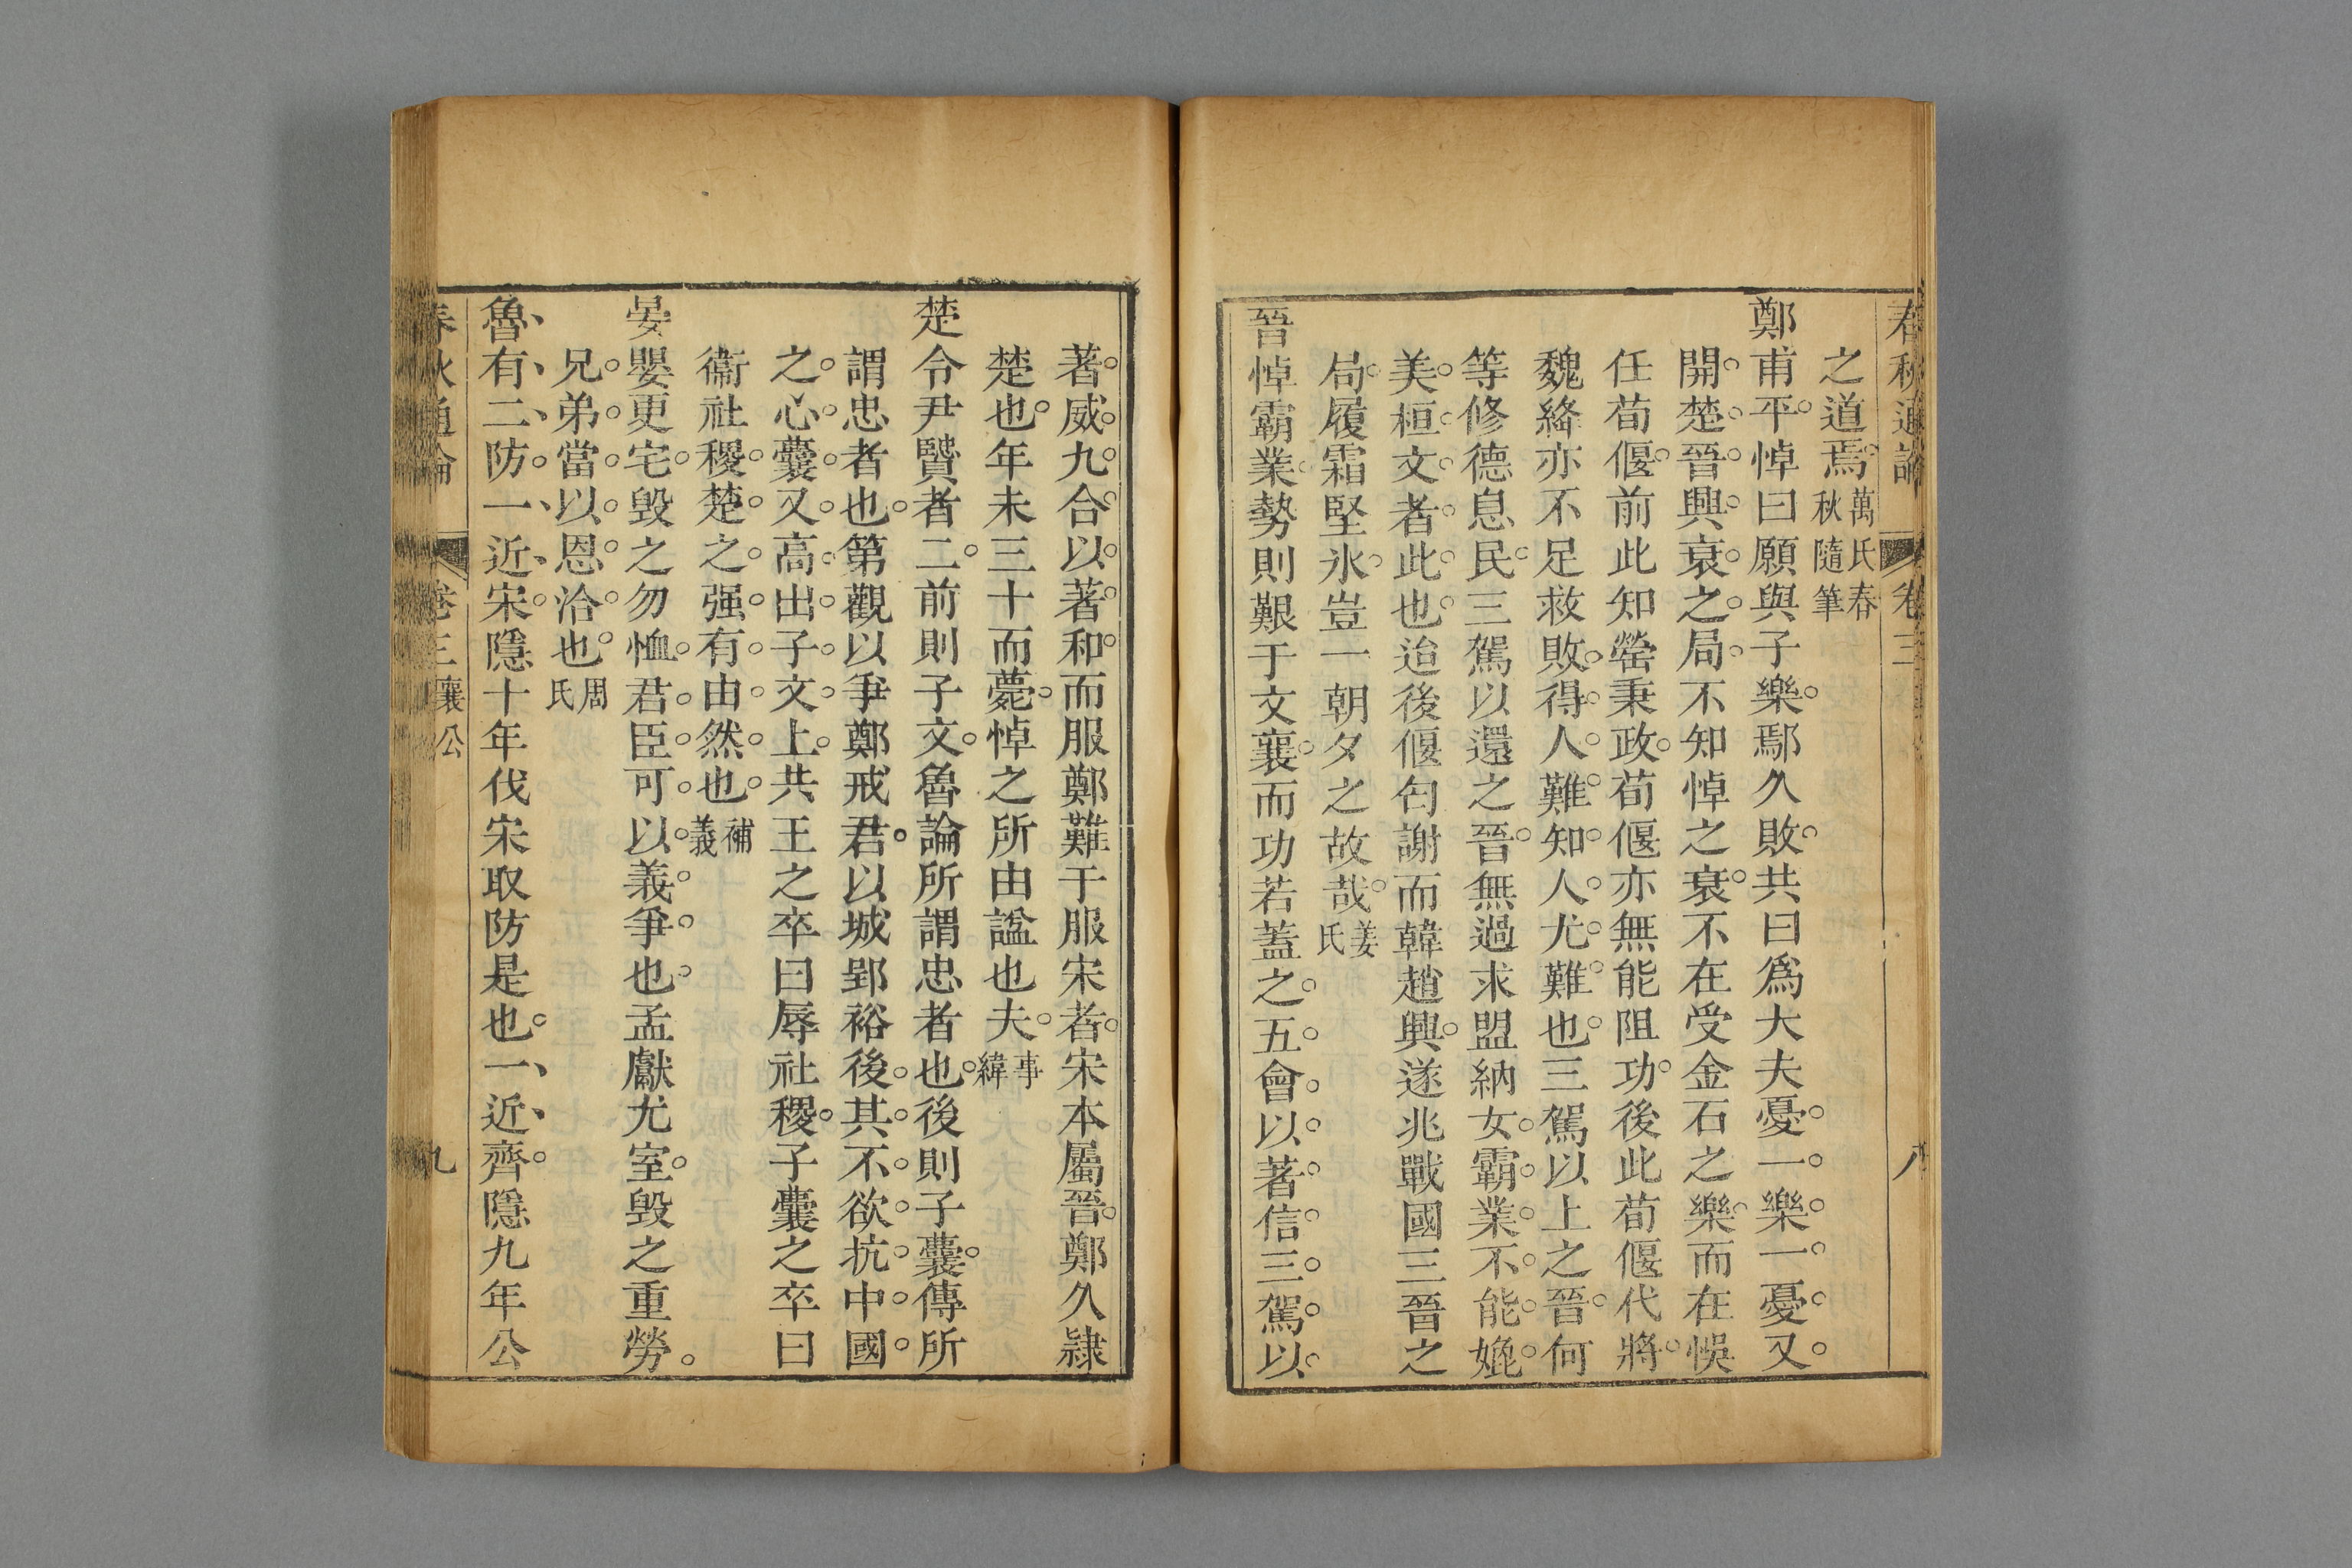 春秋通論 卷三 八
之道焉萬氏春秋隨筆
鄭甫平悼曰願與子樂鄢久敗共曰為大夫憂一樂一憂又
開楚晉興衰之局不知悼之衰不在受金石之樂而在悞
任荀偃前此知罃秉政荀偃亦無能阻功後此荀偃代將
魏絳亦不足救敗得人難知人尤難也三駕以上之晉何
等修德息民三駕以還之晉無過求盟納女霸業不能娩
美桓文者此也迨後偃匄謝而韓趙興遂兆戰國三晉之
局履霜堅氷豈一朝夕之故哉姜氏
晉悼霸業勢則艱于文襄而功若蓋之五會以著信三駕以
著威九合以著和而服鄭難于服宋者宋本屬晉鄭久隷
楚也年未三十而薨悼之所由諡也夫事緯
楚令尹賢者二前則子文魯論所謂忠者也後則子囊傳所
謂忠者也第觀以爭鄭戒君以城郢裕後其不欲抗中國
之心囊又高出子文上共王之卒曰辱社稷子囊之卒曰
衞社稷楚之强有由然也補義
晏嬰更宅毀之勿恤君臣可以義爭也孟獻尤室毀之重勞
兄弟當以恩洽也周氏
魯有二防一近宋隱十年伐宋取防是也一近齊隱九年公
春秋通論 卷三襄公 九